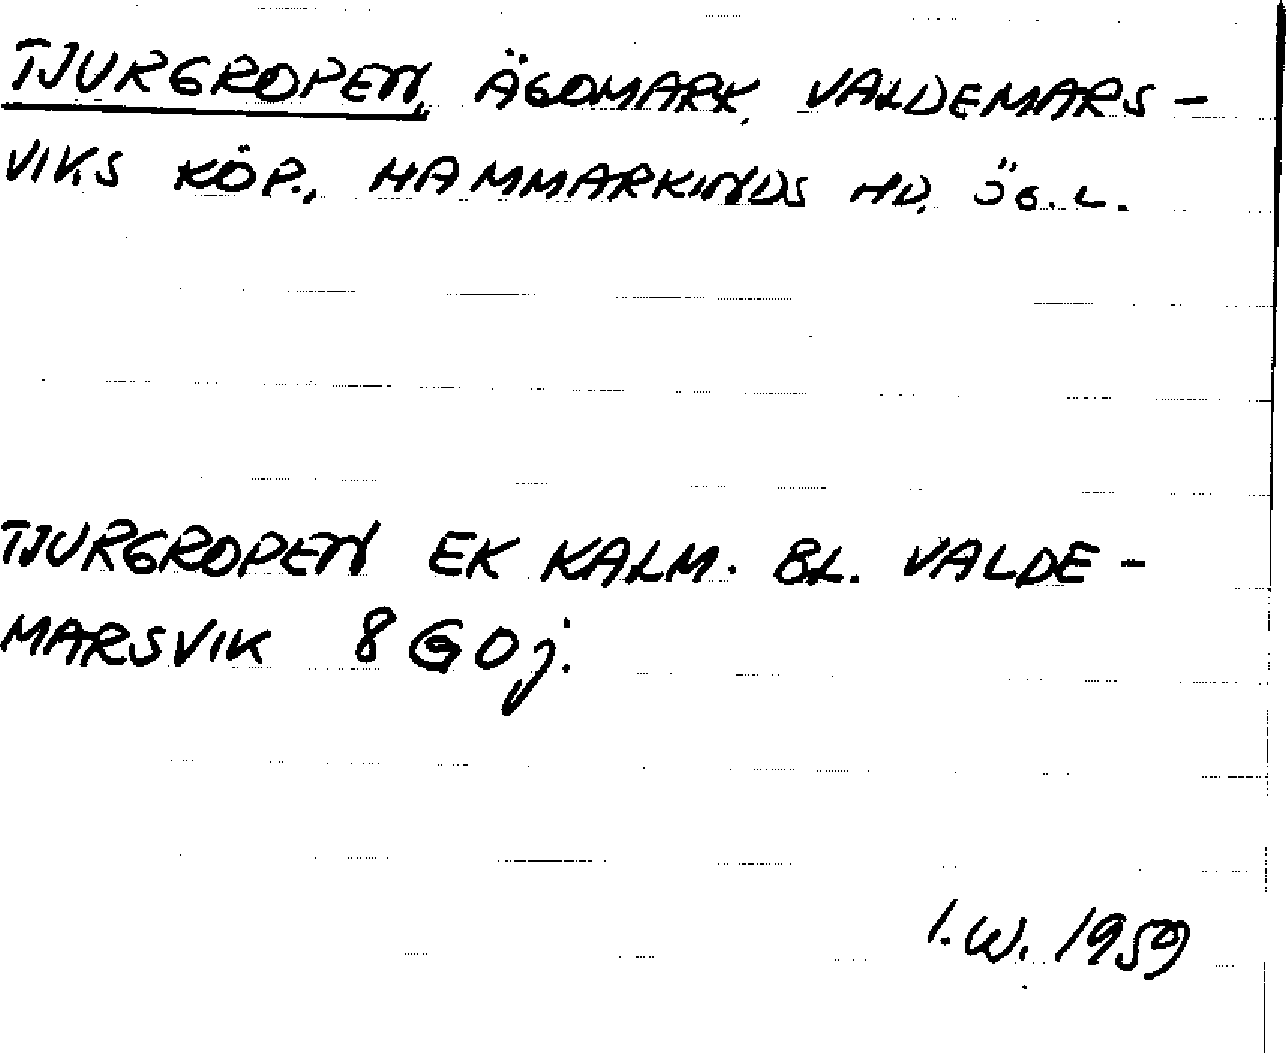 TJURGROPEN, ÄGOMARK, VALDEMARS-
VIKS KÖP., HAMMARKINDS HD, ÖG.L.
TJURGROPEN EK KALM. BL. VALDE-
MARSVIK 8 G O j.
I.W. 1959